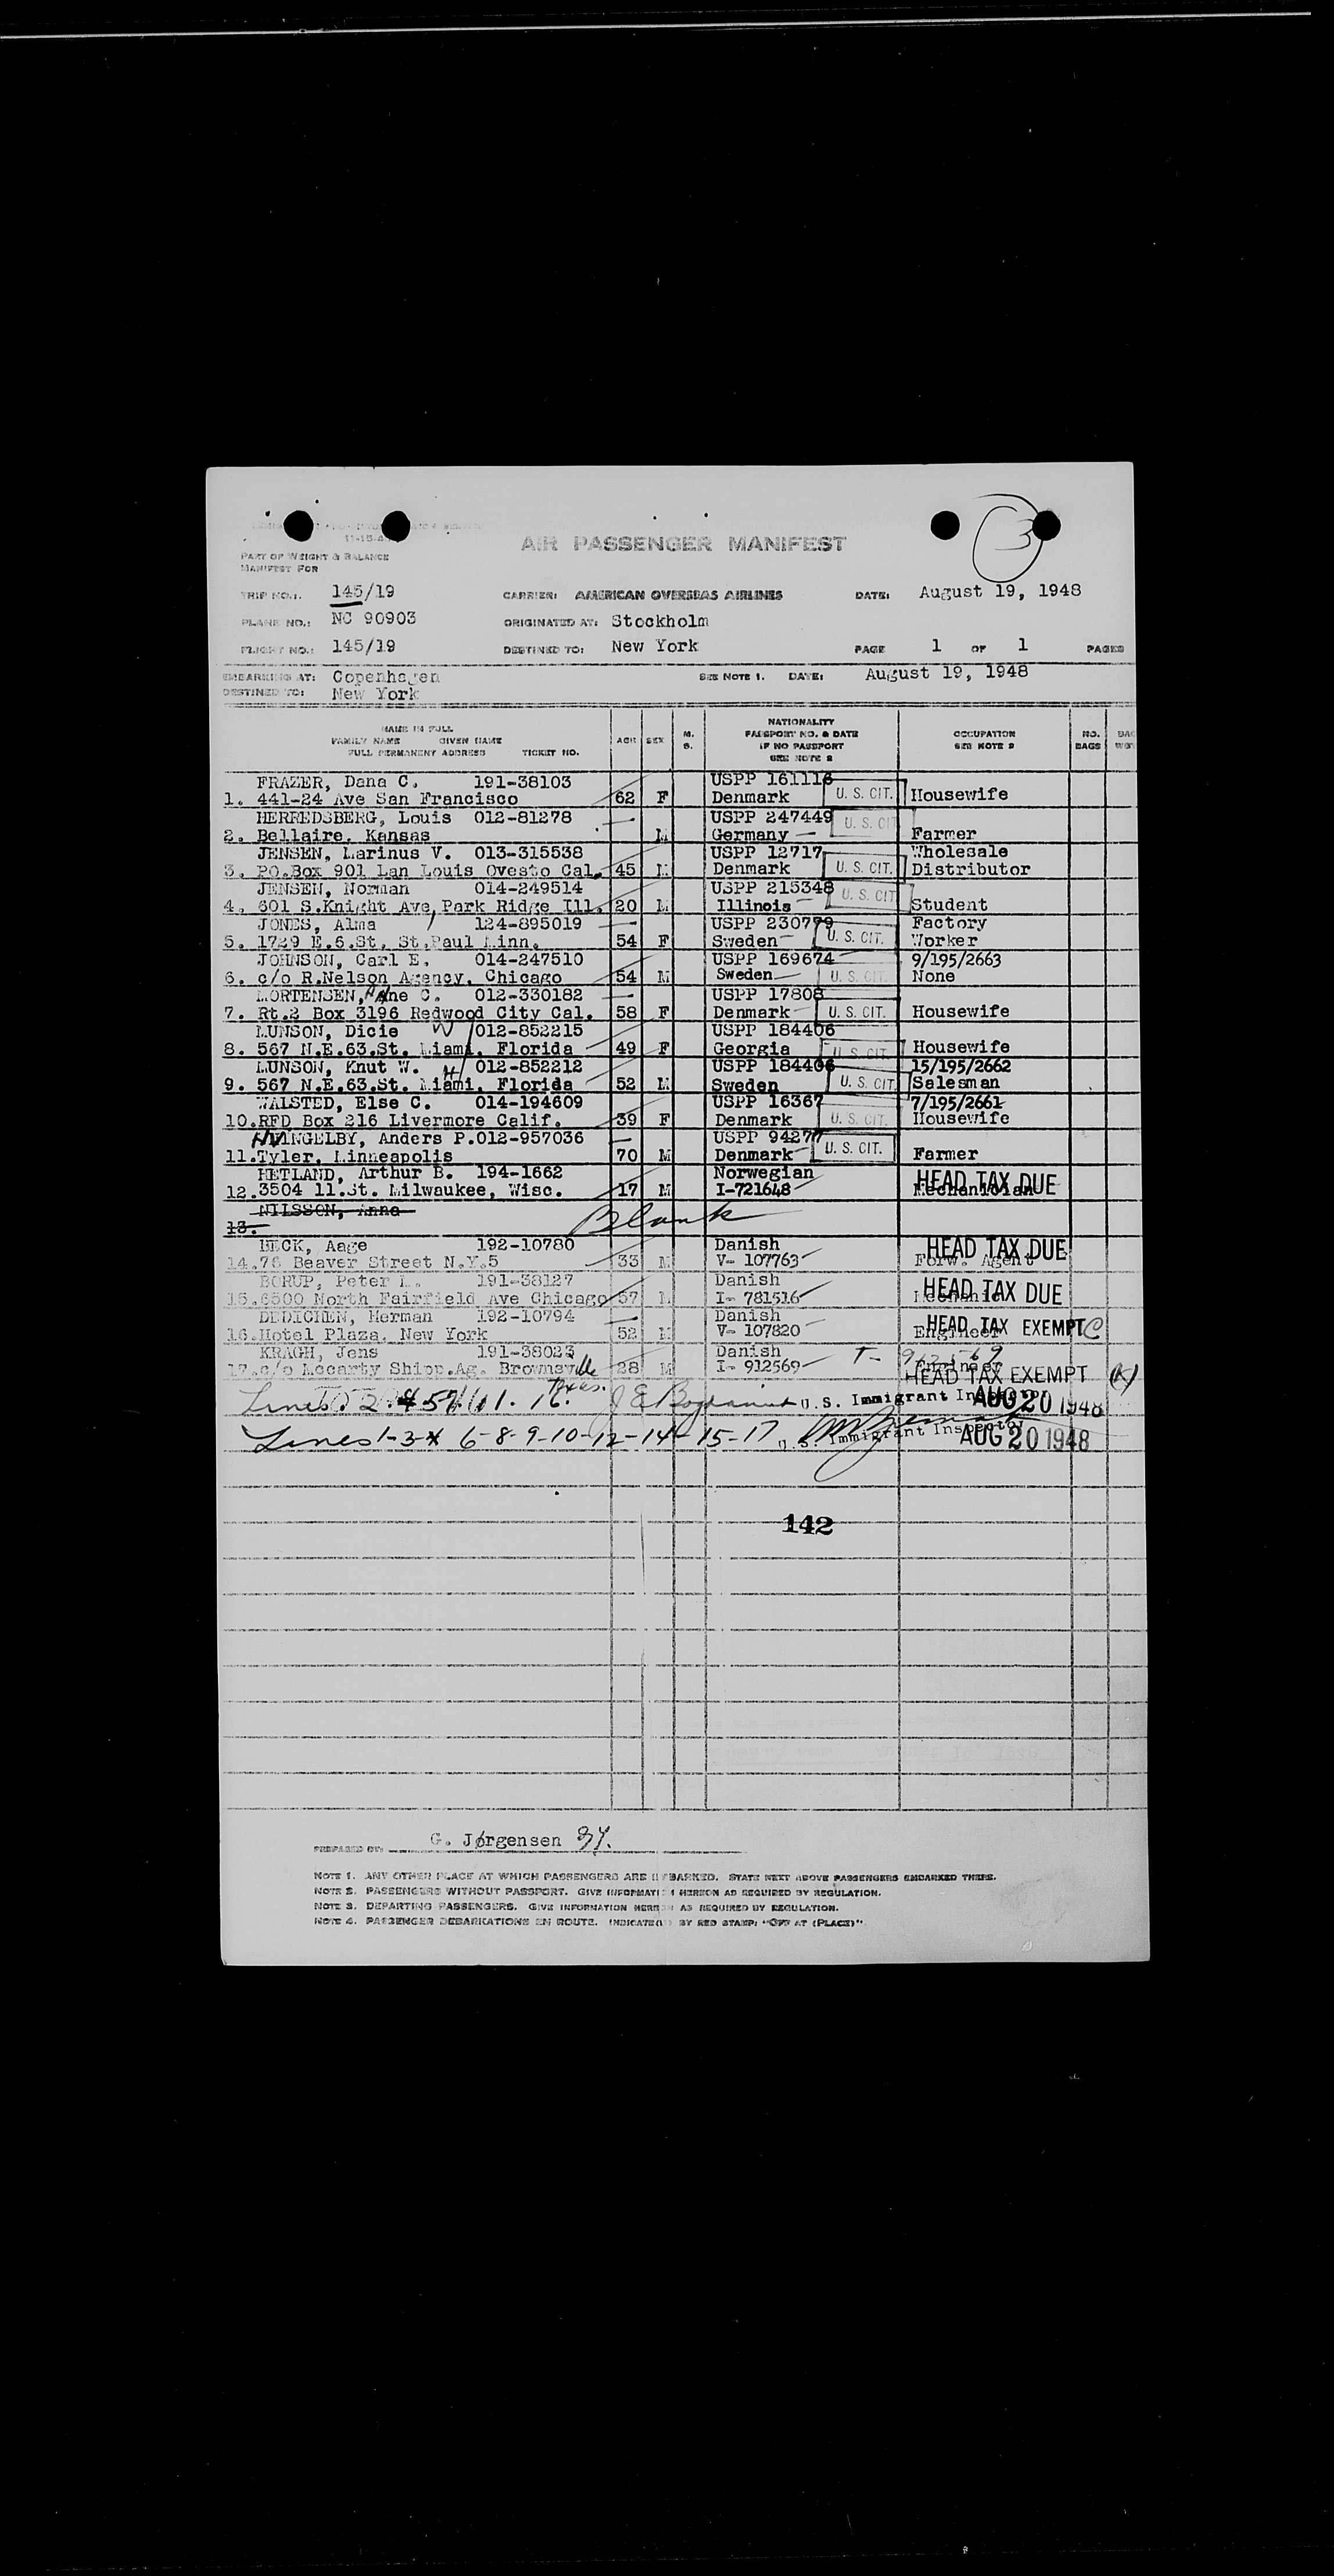 11-15-4
AIR PASSENGER MANIFEST
3
PART OF WEIGHT & BALANCE
MANIFEST FOR
TRIP NO.: 145/19 CARRIER: AMERICAN OVERSEAS AIRLINES DATE: August 19, 1948
PLANE NO.: NC 90903 ORIGINATED AT: Stockholm
FLIGHT NO.: 145/19 DESTINED TO: New York PAGE 1 OF 1 PAGES
EMBARKING AT: Copenhagen SEE NOTE 1. DATE: August 19, 1948
DESTINED TO: New York
NAME IN FULL
FAMILY NAME GIVEN NAME
FULL PERMANENT ADDRESS TICKET NO.
AGE SEX M. S.
NATIONALITY
PASSPORT NO. & DATE
IF NO PASSPORT
SEE NOTE 2
OCCUPATION
SEE NOTE 3
NO. BAGS
FRAZER, Dana C. 191-38103 USPP 161116
1. 441-24 Ave San Francisco 62 F Denmark U. S. CIT. Housewife
HERREDSBERG, Louis 012-81278 USPP 247449
2. Bellaire, Kansas M Germany U. S. CIT Farmer
JENSEN, Larinus V. 013-315538 USPP 12717 Wholesale
3. PO.Box 901 Lan Louis Ovesto Cal. 45 M Denmark U. S. CIT. Distributor
JENSEN, Norman 014-249514 USPP 215348
4. 601 S.Knight Ave Park Ridge Ill. 20 M Illinois U. S. CIT Student
JONES, Alma 124-895019 USPP 230779 Factory
5. 1729 E.6.St. St.Paul Minn. 54 F Sweden U. S. CIT. Worker
JOHNSON, Carl E. 014-247510 USPP 169674 9/195/2663
6. c/o R.Nelson Agency, Chicago 54 M Sweden U. S. CIT. None
MORTENSEN, Ane C. 012-330182 USPP 17808
7. Rt.2 Box 3196 Redwood City Cal. 58 F Denmark U. S. CIT. Housewife
MUNSON, Dicie W 012-852215 USPP 184406
8. 567 N.E.63.St. Miami, Florida 49 F Georgia U. S. CIT. Housewife
MUNSON, Knut W. H 012-852212 USPP 184406 15/195/2662
9. 567 N.E.63.St. Miami, Florida 52 M Sweden U. S. CIT. Salesman
WALSTED, Else C. 014-194609 USPP 16367 7/195/2661
10. RFD Box 216 Livermore Calif. 39 F Denmark U. S. CIT. Housewife
HVINGELBY, Anders P. 012-957036 USPP 94277
11. Tyler, Minneapolis 70 M Denmark U. S. CIT. Farmer
HETLAND, Arthur B. 194-1662 Norwegian
12. 3504 11.St. Milwaukee, Wisc. 17 M I-721648 HEAD TAX DUE
NILSSON, Anna
13. Blank
BECK, Aage 192-10780 Danish HEAD TAX DUE
14. 76 Beaver Street N.Y.5 33 M V- 107763 Forw. Agent
BORUP, Peter M. 191-38127 Danish
15. 6500 North Fairfield Ave Chicago 57 M I- 781516 HEAD TAX DUE
DEDICHEN, Herman 192-10794 Danish HEAD TAX EXEMPT C
16. Hotel Plaza, New York 52 M V- 107820 Engineer
KRAGH, Jens 191-38023 Danish T- 912569
17. c/o Mccarty Shipp.Ag. Brownsville 28 M I- 912569 Engineer
Texas. HEAD TAX EXEMPT (K)
Lines 2 4 5 7 11. 16. U. S. Immigrant Inspector AUG 20 1948
Lines 1-3-* 6-8-9-10-12-14-15-17 U. S. Immigrant Inspector AUG 20 1948
142
PREPARED BY: G. Jørgensen
NOTE 1. ANY OTHER PLACE AT WHICH PASSENGERS ARE EMBARKED. STATE NEXT ABOVE PASSENGERS EMBARKED THERE.
NOTE 2. PASSENGERS WITHOUT PASSPORT. GIVE INFORMATION HEREON AS REQUIRED BY REGULATION.
NOTE 3. DEPARTING PASSENGERS. GIVE INFORMATION HEREON AS REQUIRED BY REGULATION.
NOTE 4. PASSENGER DEBARKATIONS EN ROUTE. INDICATE BY RED STAMP: "OFF AT (PLACE)".